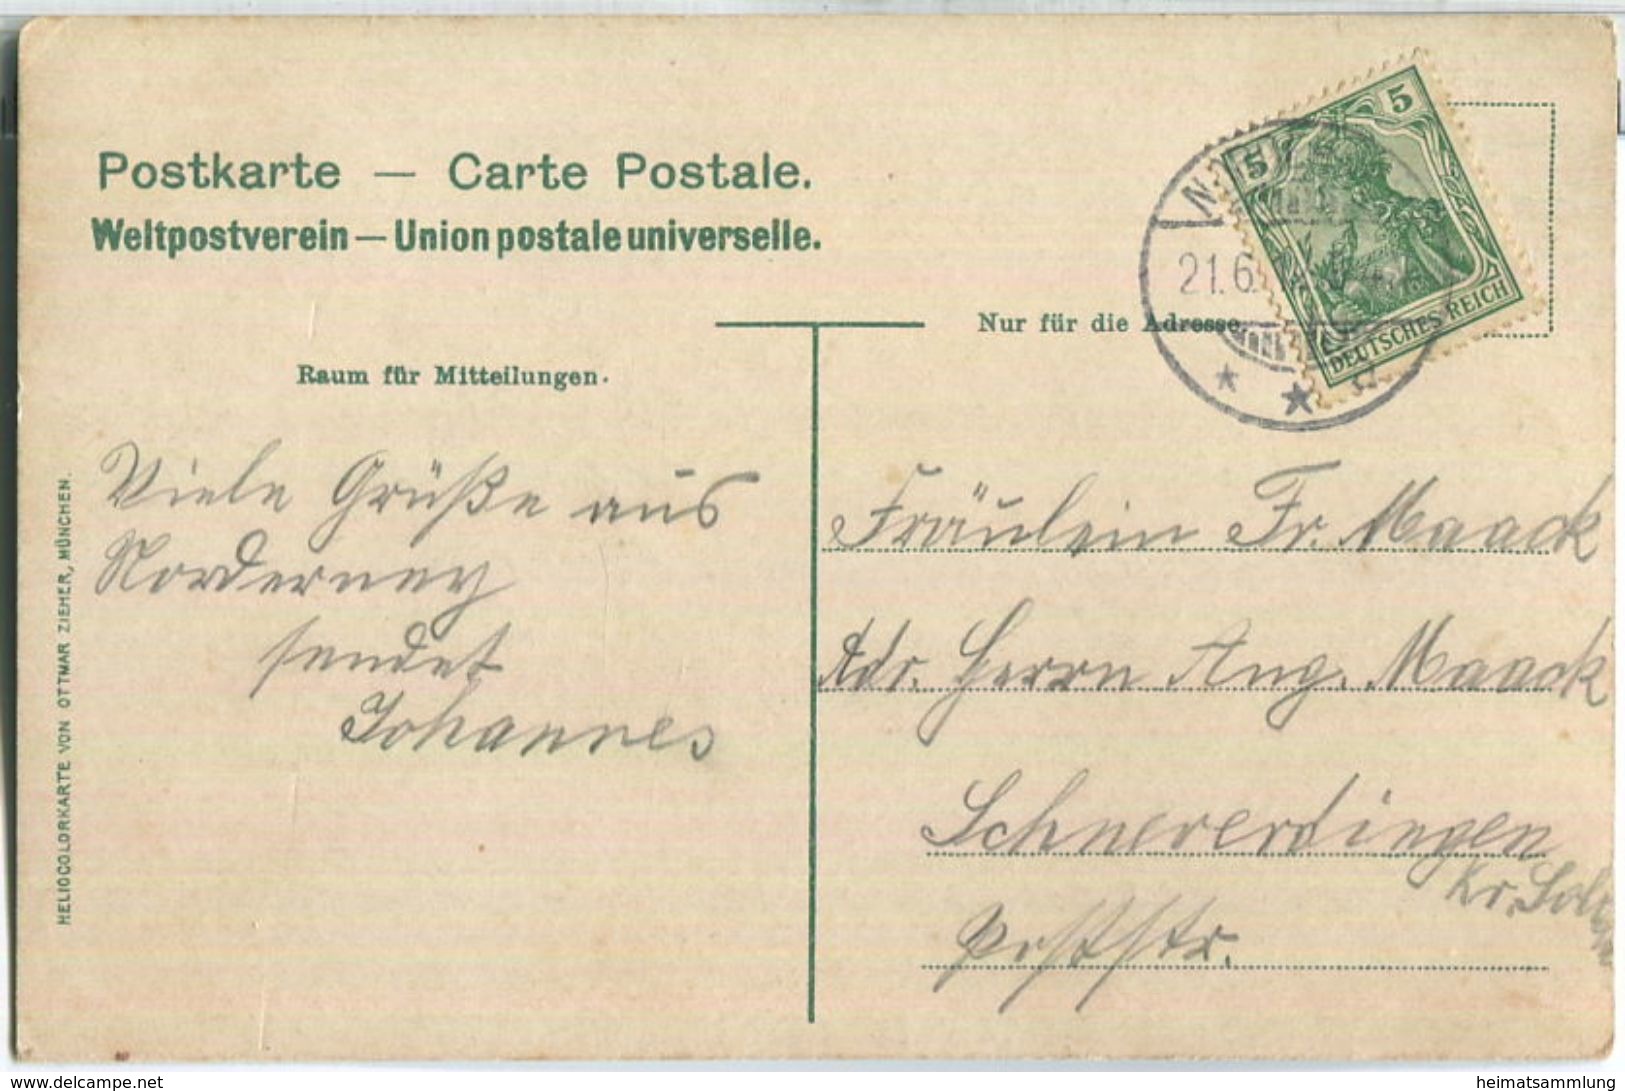 Postkarte — Carte Postale.
Weltpostverein — Union postale universelle.
Nur für die Adresse.
Raum für Mitteilungen.
5
5
DEUTSCHES REICH
21.6.
Viele Grüße aus
Norderney
sendet
Johannes
Fräulein Fr. Maack
Adr. Herrn Aug. Maack
Schneverdingen
Kr. Soltau
Poststr.
HELIOCOLORKARTE VON OTTMAR ZIEHER, MÜNCHEN.
www.delcampe.net
heimatsammlung